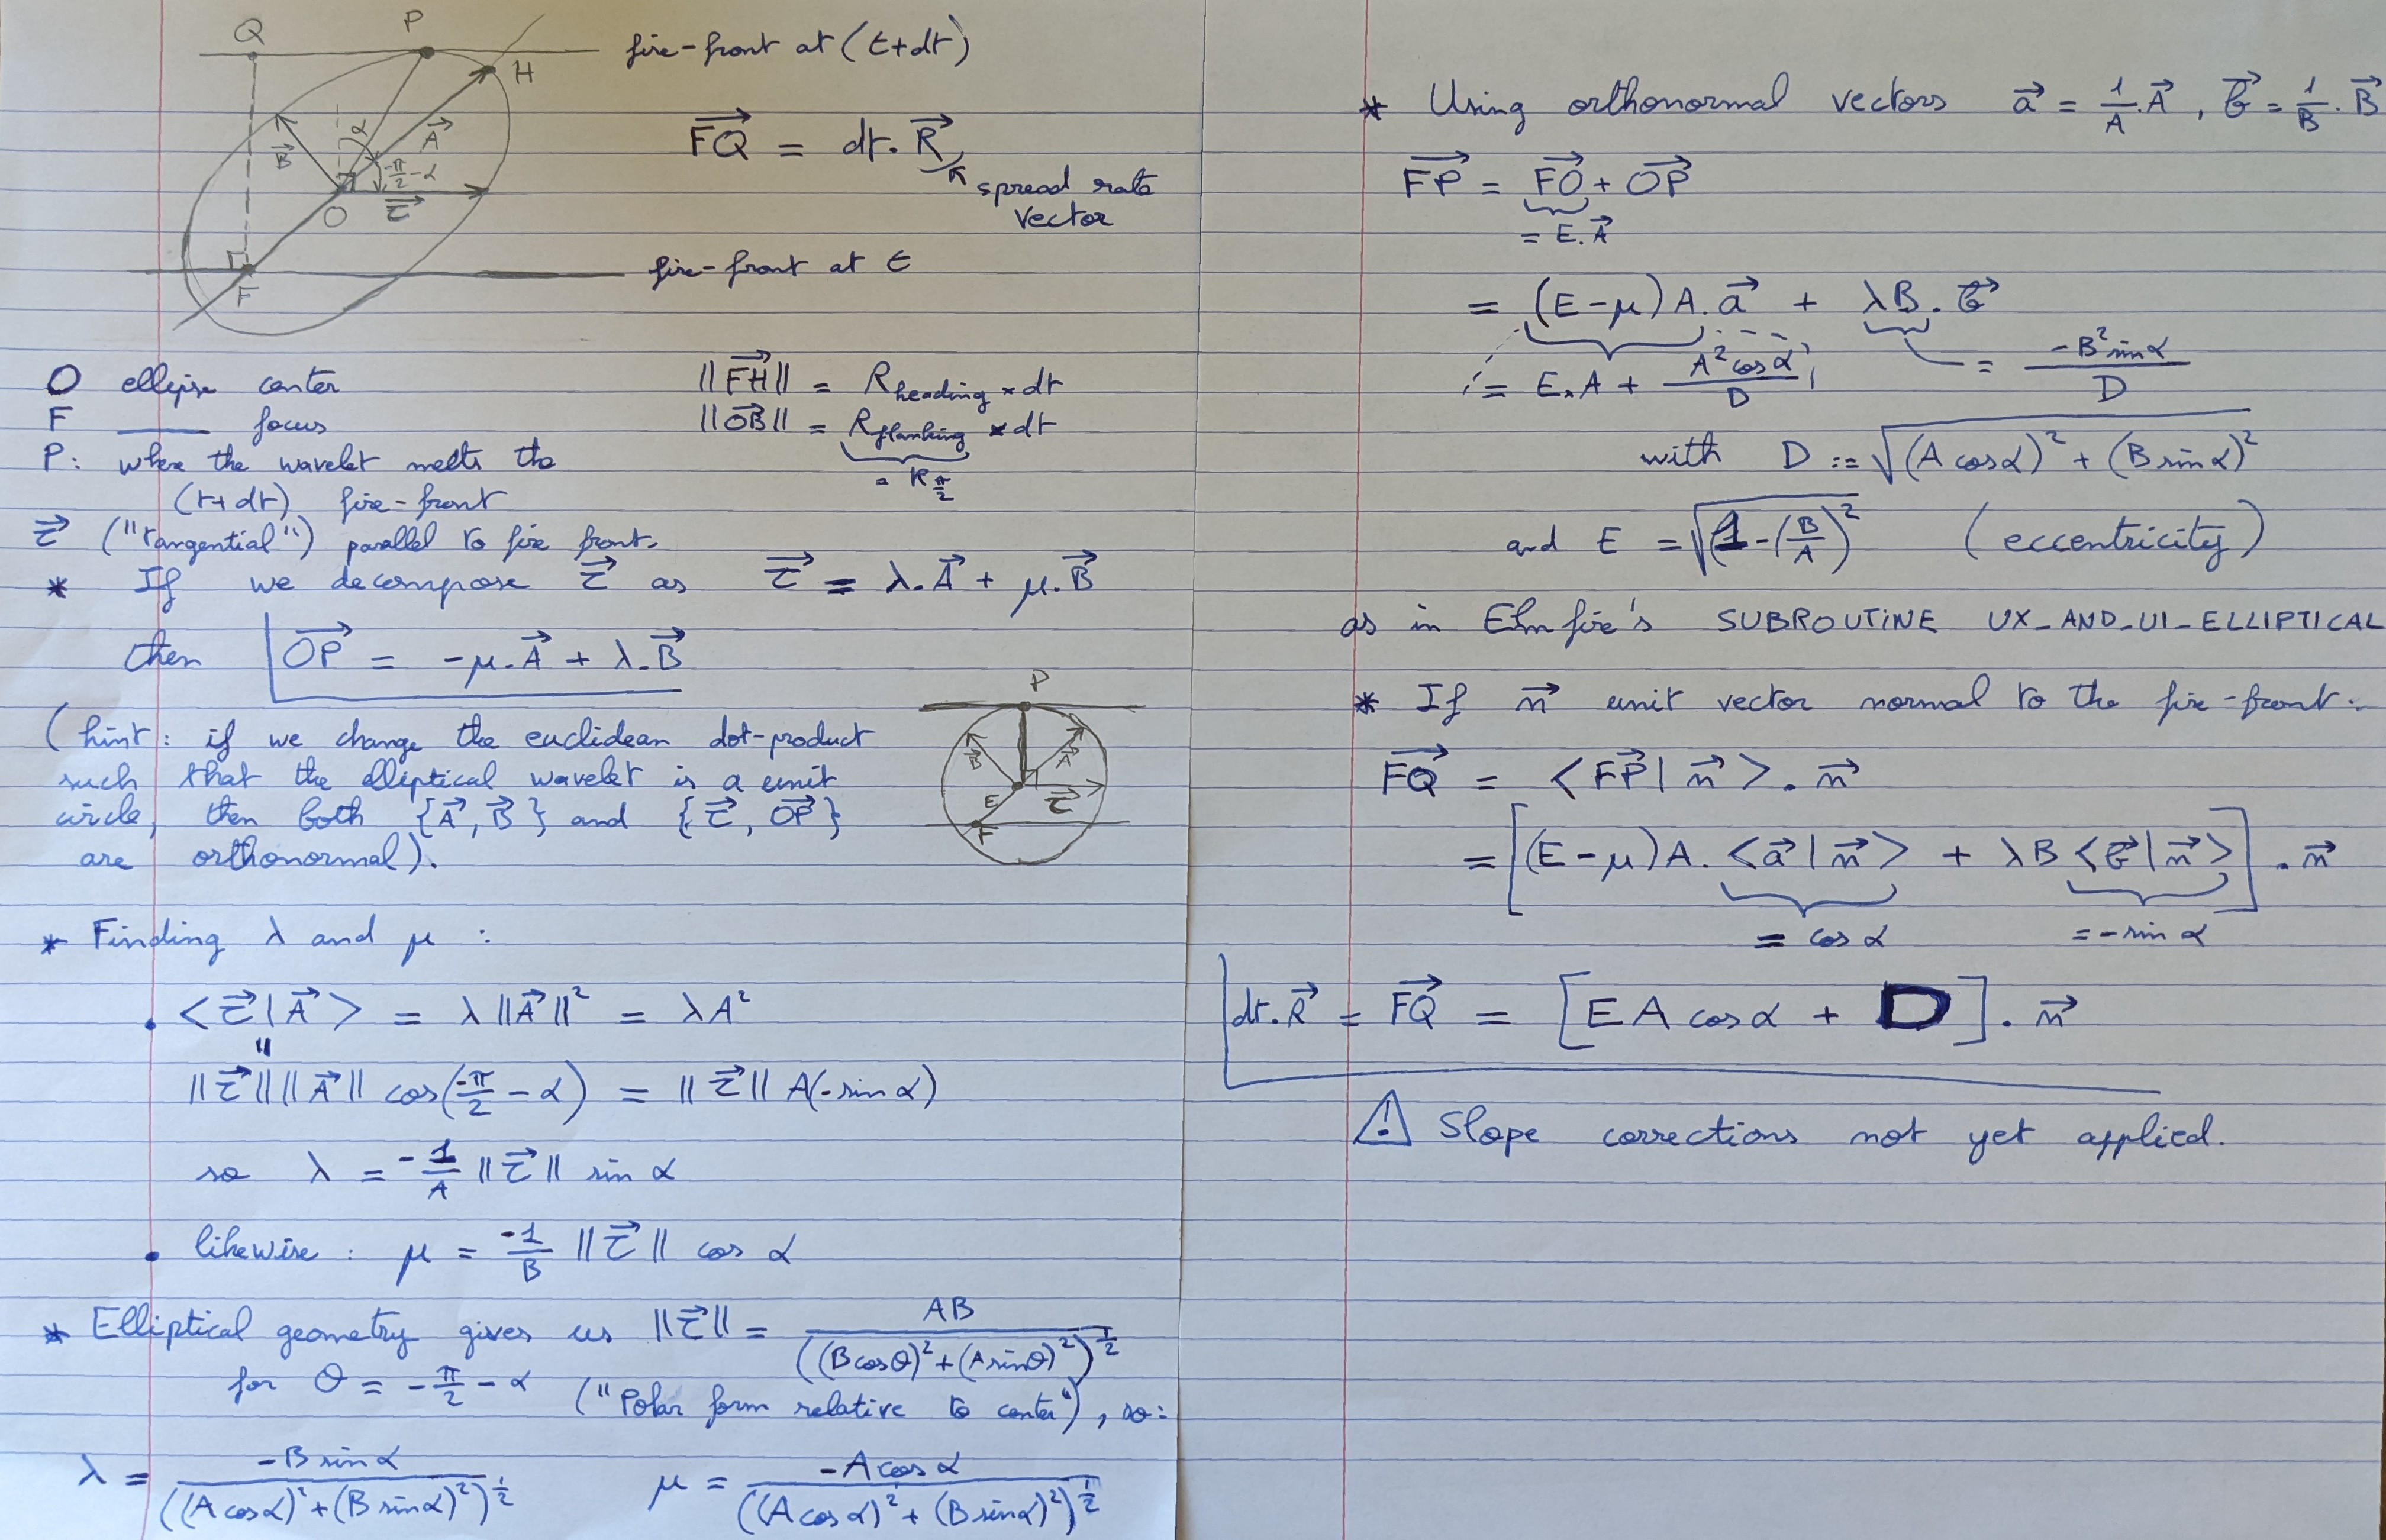 Q P
fire-front at (t+dt)
H
α A⃗
B⃗ -π/2-α
O τ⃗
FQ⃗ = dt. R⃗
spread rate
vector
fire-front at t
F
O ellipse center
F —— focus
P: where the wavelet meets the
(t+dt) fire-front
||FH⃗|| = R_heading × dt
||OB⃗|| = R_flanking × dt
= R_π/2
τ⃗ ("tangential") parallel to fire front.
* If we decompose τ⃗ as τ⃗ = λ.A⃗ + μ.B⃗
then OP⃗ = -μ.A⃗ + λ.B⃗
(hint: if we change the euclidean dot-product
such that the elliptical wavelet is a unit
circle, then both {A⃗, B⃗} and {τ⃗, OP⃗}
are orthonormal).
P
B⃗ A⃗
E τ⃗
F
* Finding λ and μ :
• <τ⃗|A⃗> = λ||A⃗||² = λA²
"
||τ⃗|| ||A⃗|| cos(-π/2 - α) = ||τ⃗|| A(-sin α)
so λ = -1/A ||τ⃗|| sin α
• likewise : μ = -1/B ||τ⃗|| cos α
* Elliptical geometry gives us ||τ⃗|| = AB / ((B cos θ)² + (A sin θ)²)^½
for θ = -π/2 - α ("Polar form relative to center"), so:
λ = -B sin α / ((A cos α)² + (B sin α)²)^½ μ = -A cos α / ((A cos α)² + (B sin α)²)^½
* Using orthonormal vectors a⃗ = 1/A . A⃗ , b⃗ = 1/B . B⃗
FP⃗ = FO⃗ + OP⃗
= E.A⃗
= (E-μ) A. a⃗ + λB . b⃗
= E.A + A² cos α / D = -B² sin α / D
with D := √((A cos α)² + (B sin α)²)
and E = √(1-(B/A)²) (eccentricity)
as in Elmfire's SUBROUTINE UX_AND_UI_ELLIPTICAL
* If n⃗ unit vector normal to the fire-front :
FQ⃗ = <FP⃗|n⃗>. n⃗
= [(E-μ)A. <a⃗|n⃗> + λB <b⃗|n⃗>] . n⃗
= cos α = -sin α
dt.R⃗ = FQ⃗ = [E A cos α + D] . n⃗
⚠ Slope corrections not yet applied.